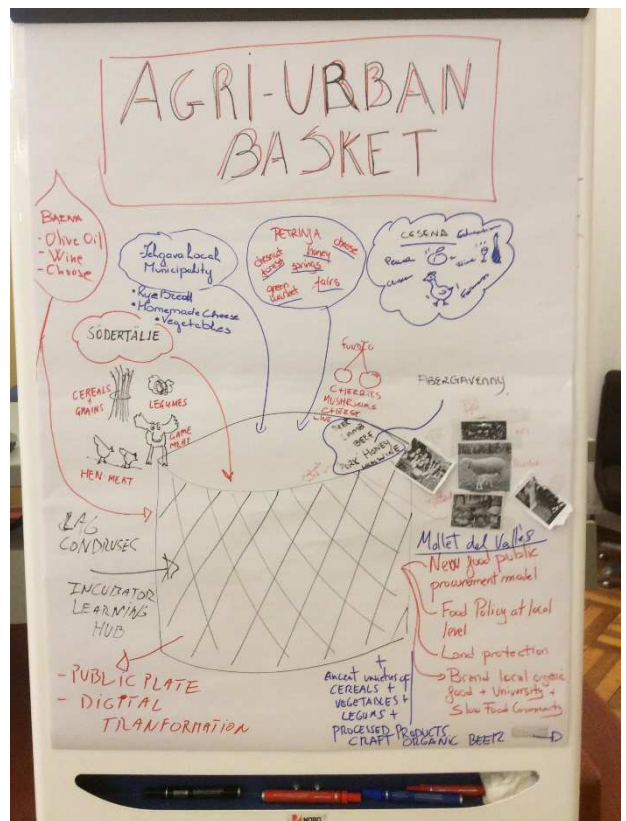 AGRI-URBAN
BASKET
BAENA
- Olive Oil
- Wine
- Cheese
Jelgava Local
Municipality
• Rye Bread
• Homemade Cheese
• Vegetables
PETRINJA
chesnut
honey
cheese
springs
green
market
fairs
CESENA
Wine
SÖDERTÄLJE
CEREALS
GRAINS
LEGUMES
GAME
MEAT
HEN MEAT
FUNDÃO
CHERRIES
MUSHROOMS
CHEESE
BEER
LAMB
BEEF
PORK HONEY
WINE
LAG
CONDRUSEC
INCUBATOR
LEARNING
HUB
- PUBLIC PLATE
- DIGITAL
TRANFORMATION
Mollet del Vallès
New food public
procurement model
Food Policy at local
level
Land protection
Brend local organic
food + University +
Slow Food Community
+
Ancient varieties of
CEREALS +
VEGETABLES +
LEGUMS +
PROCESSED PRODUCTS
CRAFT ORGANIC BEER
NOBO